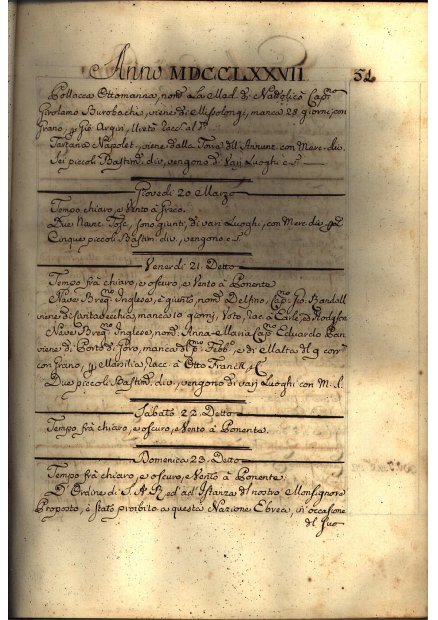 Anno MDCCLXXVII. 51
Pollacca Ottomanna, nomª La Mad. di Nattolica Capⁿᵒ
Girolamo Burobachi, viene di Missolongi, manca 28 giorni, con
Grano, p Gio: Argiri,
Tartana Napolet, viene dalla Torre dell'Annunz. con Merc. div.
Sei piccoli Bastimᵗⁱ div, vengono di Varj Luoghi c. Sᵃ
Giovedi 20 Marzo
Tempo chiaro, e Vento à Greco.
Due Navic. Tosc, sono giunti, di vari Luoghi, con Merc. div. p L
Cinque piccoli Bastimᵗⁱ div, vengono c. Sᵃ
Venerdi 21. Detto
Tempo frà chiaro, e oscuro, e Vento à Ponente
Nave Bregⁿᵒ Inglese, è giunto, nomᵒ Delfino, Capⁿᵒ Gio: Randall
viene di Civitavecchia, manca 10 giorni, Voto, Racc. à Earle, e Hodgson
Nave Bregⁿᵒ Inglese, nomᵒ Anna-Maria Capⁿᵒ Eduardo
viene di Porto di Goro, manca dal pⁿᵒ Febbº, e di Malta del 9 corrᵗᵉ
con Grano, p Racc. à Otto Franck, e C.
Due piccoli Bastimᵗⁱ div, vengono di varj Luoghi con M. d.
Sabato 22. Detto
Tempo frà chiaro, e oscuro, e Vento à Ponente.
Domenica 23. Detto
Tempo frà chiaro, e oscuro, e Vento à Ponente
D'Ordine di S. A. R. ed ad'Istanza del nostro Monsignore
Proposto, è stato proibito a questa Nazione Ebrea, in occasione
del suo